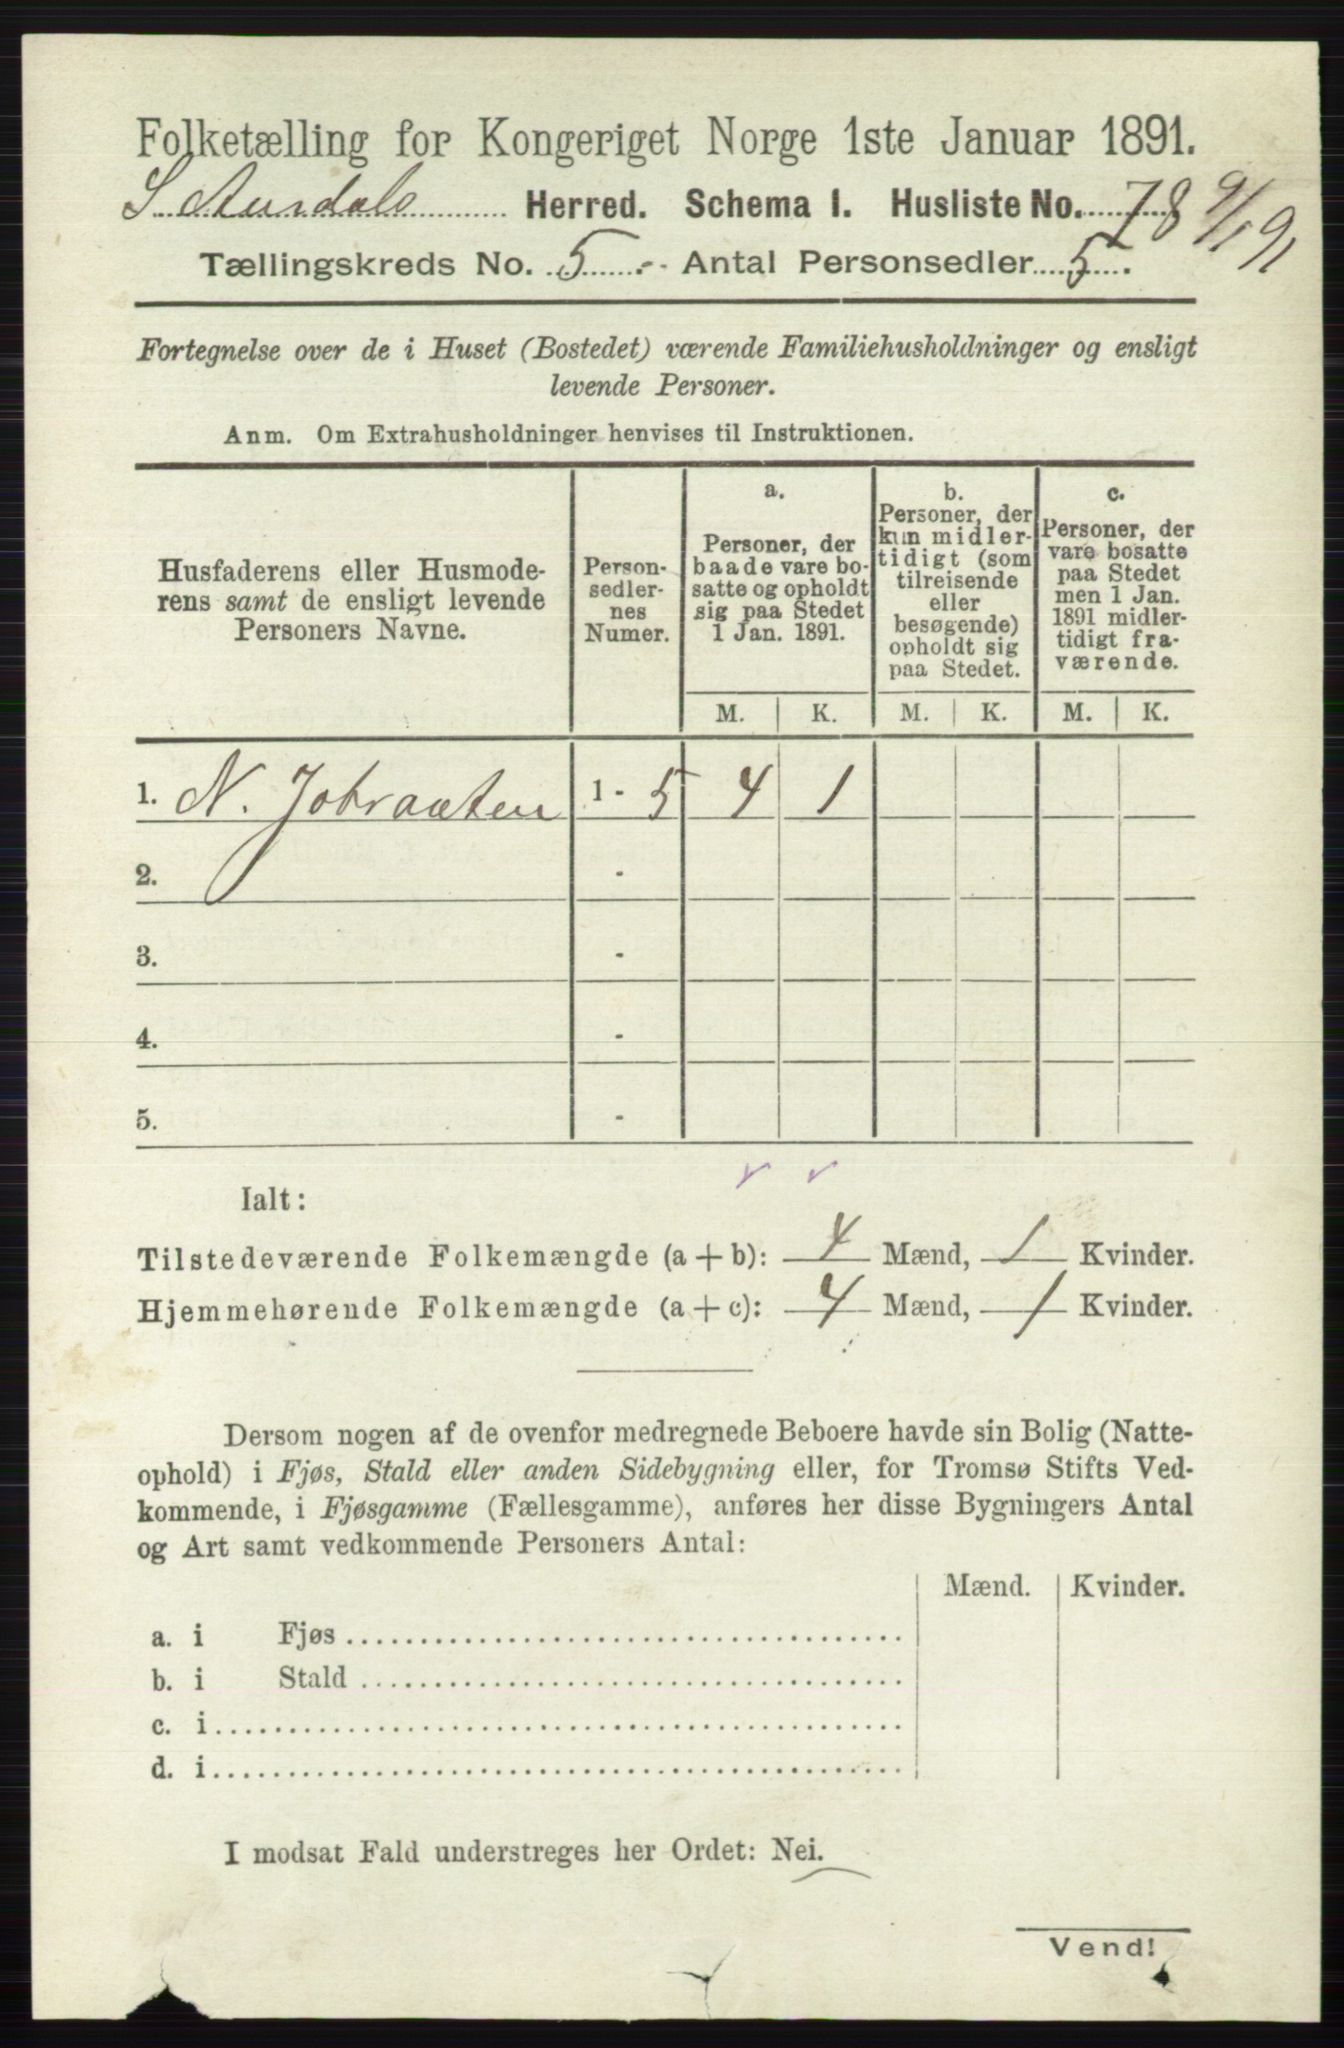 Folketælling for Kongeriget Norge 1ste Januar 1891.
S. Aurdals Herred. Schema I. Husliste No. 78 9/1 91
Tællingskreds No. 5 - Antal Personsedler 5.
Fortegnelse over de i Huset (Bostedet) værende Familiehusholdninger og ensligt
levende Personer.
Anm. Om Extrahusholdninger henvises til Instruktionen.
Husfaderens eller Husmode-
rens samt de ensligt levende
Personers Navne.
Person-
sedler-
nes
Numer.
a.
Personer, der
baade vare bo-
satte og opholdt
sig paa Stedet
1 Jan. 1891.
b.
Personer, der
kun midler-
tidigt (som
tilreisende
eller
besøgende)
opholdt sig
paa Stedet.
c.
Personer, der
vare bosatte
paa Stedet
men 1 Jan.
1891 midler-
tidigt fra-
værende.
M. K. M. K. M. K.
1. N. Jobraaten 1 - 5 4 1
2. -
3. -
4. -
5. -
Ialt:
Tilstedeværende Folkemængde (a + b): 4 Mænd, 1 Kvinder.
Hjemmehørende Folkemængde (a + c): 4 Mænd, 1 Kvinder.
Dersom nogen af de ovenfor medregnede Beboere havde sin Bolig (Natte-
ophold) i Fjøs, Stald eller anden Sidebygning eller, for Tromsø Stifts Ved-
kommende, i Fjøsgamme (Fællesgamme), anføres her disse Bygningers Antal
og Art samt vedkommende Personers Antal:
Mænd. Kvinder.
a. i Fjøs
b. i Stald
c. i
d. i
I modsat Fald understreges her Ordet: Nei.
Vend!